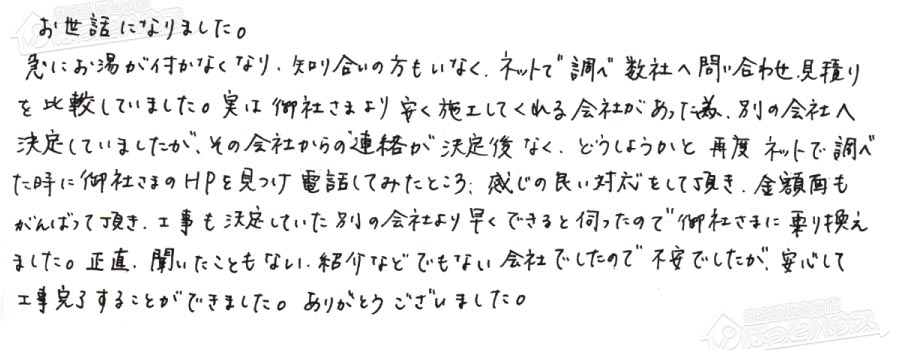 お世話になりました。
急にお湯が付かなくなり、知り合いの方もいなく、ネットで調べ数社へ問い合わせ、見積り
を比較していました。実は御社さまより安く施工してくれる会社があった為、別の会社へ
決定していましたが、その会社からの連絡が決定後なく、どうしようかと再度ネットで調べ
た時に御社さまのHPを見つけ電話してみたところ、感じの良い対応をして頂き、金額面も
がんばって頂き、工事も決定していた別の会社より早くできると伺ったので御社さまに乗り換え
ました。正直、聞いたこともない、紹介などでもない会社でしたので不安でしたが、安心して
工事完了することができました。ありがとうございました。
ほっとハウス